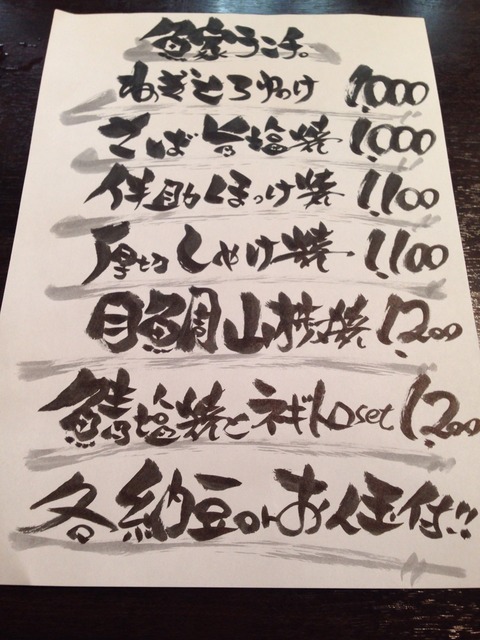 魚家らンチ。
ねぎとろゆっけ 1,000
さば旨塩焼 1,000
伴助ほっけ焼 1,100
厚切しゃけ焼 1,100
目鯛山椒焼 1,200
鯖塩焼とネギトロset 1,200
各納豆orお人玉付!!